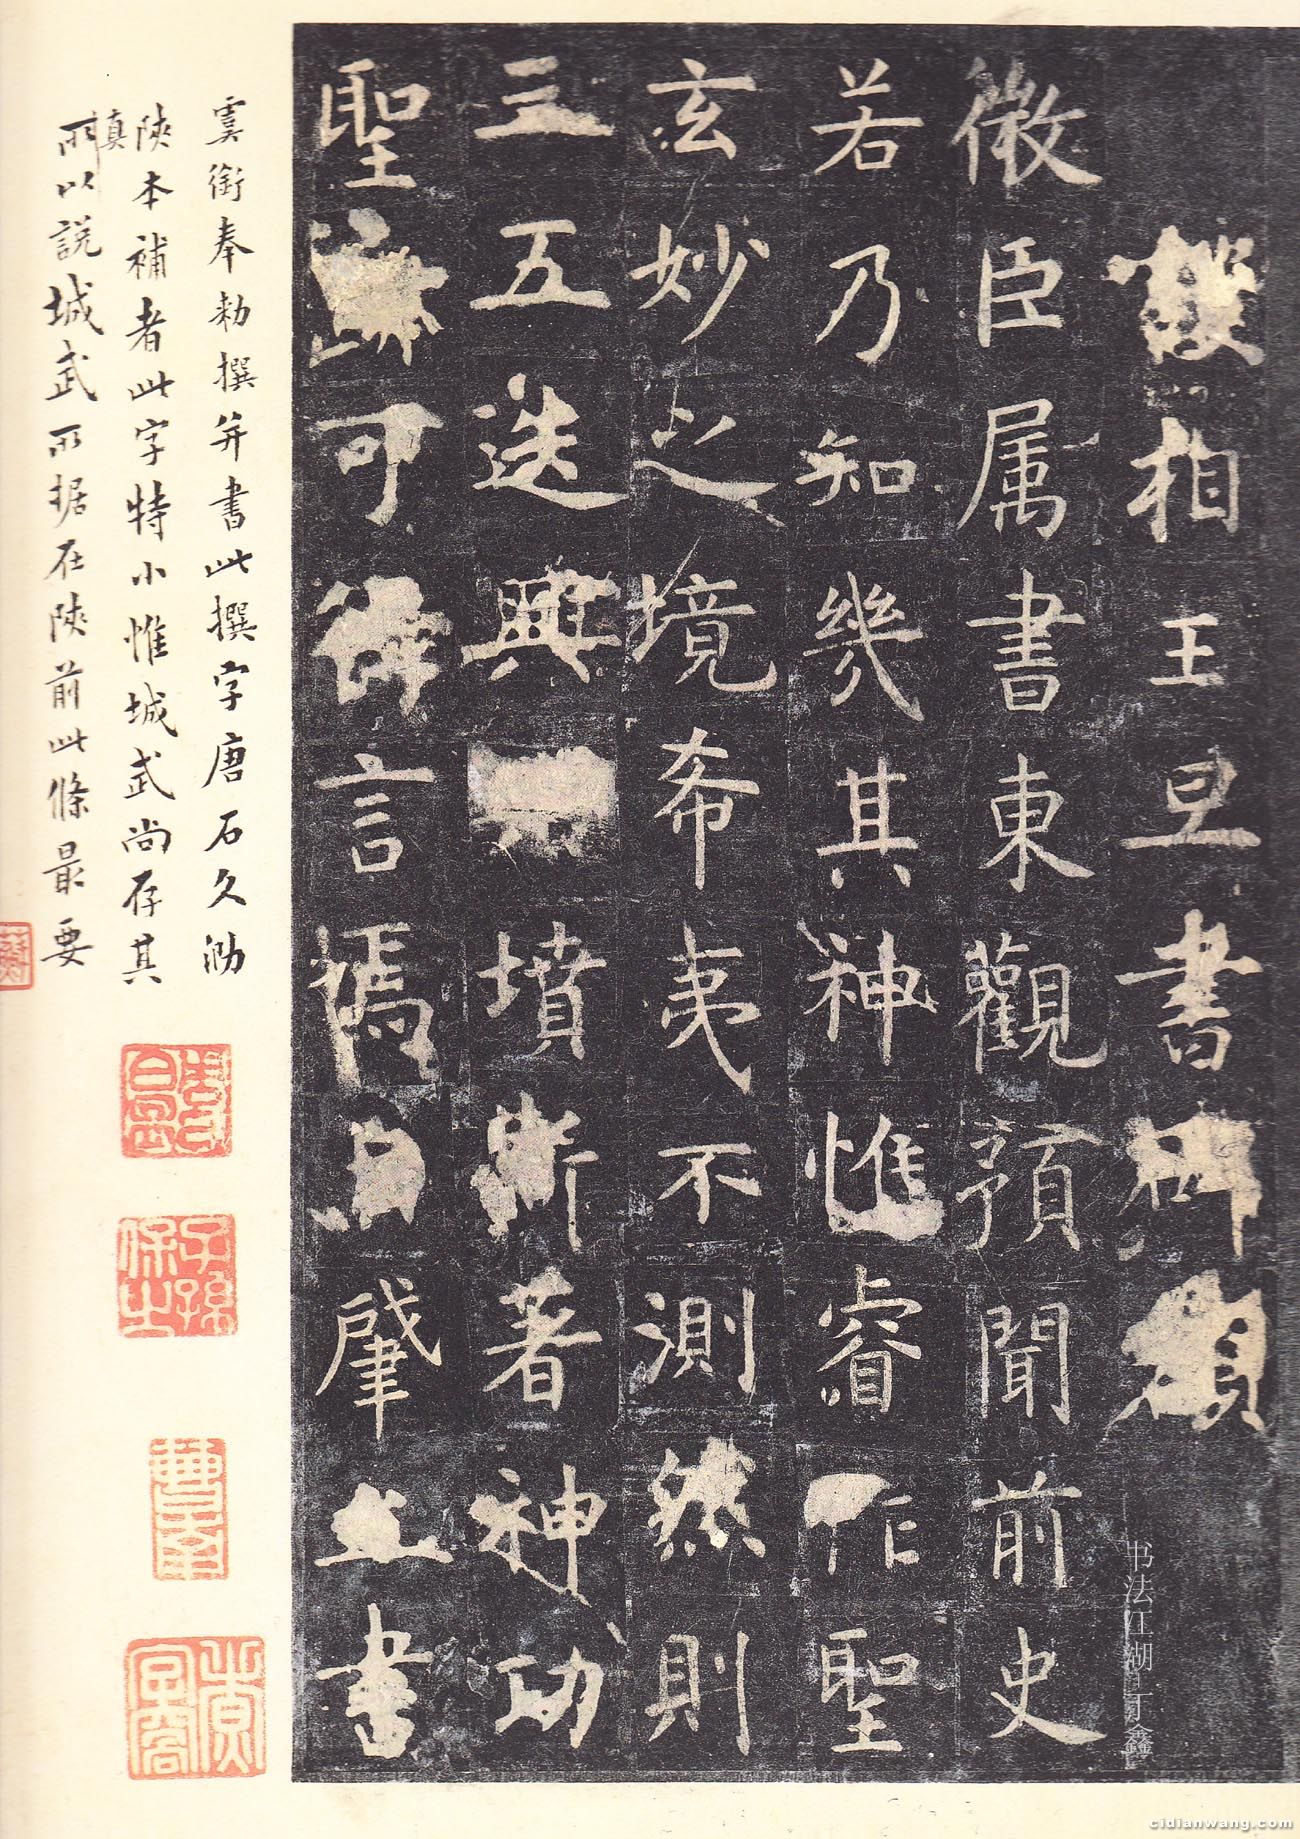 相王旦書碑額
微臣属書東觀預聞前史
若乃知幾其神惟睿作聖
玄妙之境希夷不測然則
三五迭興墳斯著神功
聖迹可得言焉自肇立書
虞銜奉勅撰并書此撰字唐石久泐
陝本補者此字特小惟城武尚存其
真
所以說城武所据在陝前此條最要
子孫保之
书法江湖丁鑫
cidianwang.com